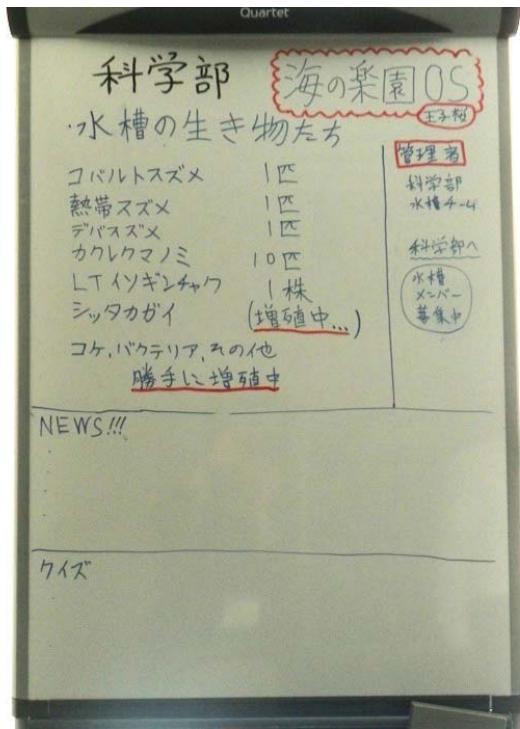 Quartet
科学部
海の楽園OS
王子桜
・水槽の生き物たち
コバルトスズメ 1匹
熱帯スズメ 1匹
デバスズメ 1匹
カクレクマノミ 10匹
LTイソギンチャク 1株
シッタカガイ (増殖中...)
コケ,バクテリア,その他
勝手に増殖中
管理者
科学部
水槽チーム
科学部へ
水槽
メンバー
募集中
NEWS!!!
クイズ